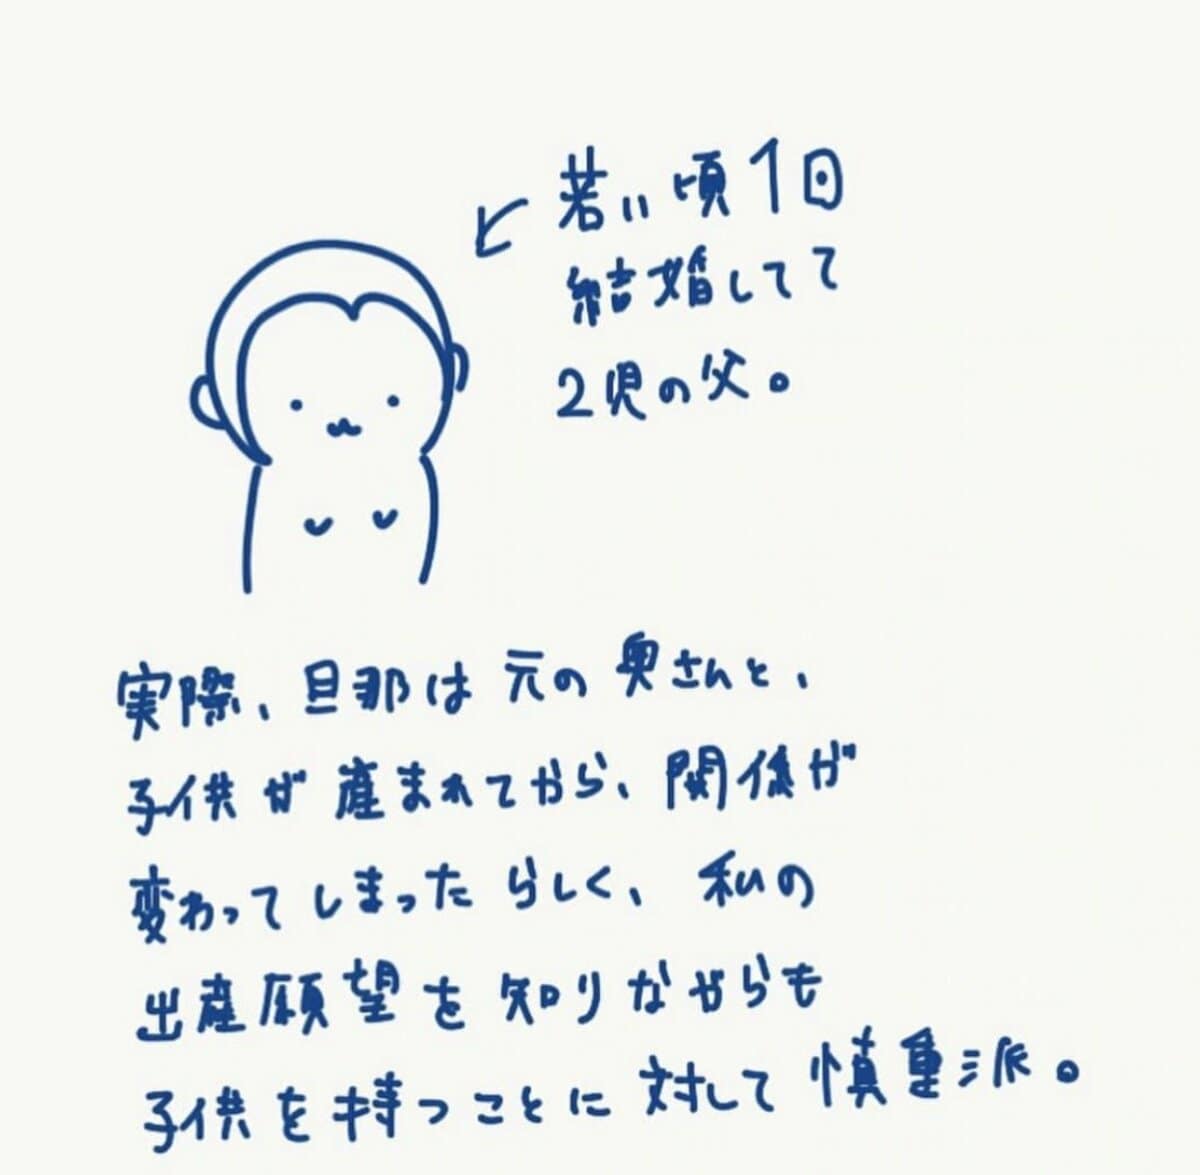 若い頃1回
結婚してて
2児の父。
実際、旦那は元の奥さんと、
子供が産まれてから、関係が
変わってしまったらしく、私の
出産願望を知りながらも
子供を持つことに対して慎重派。